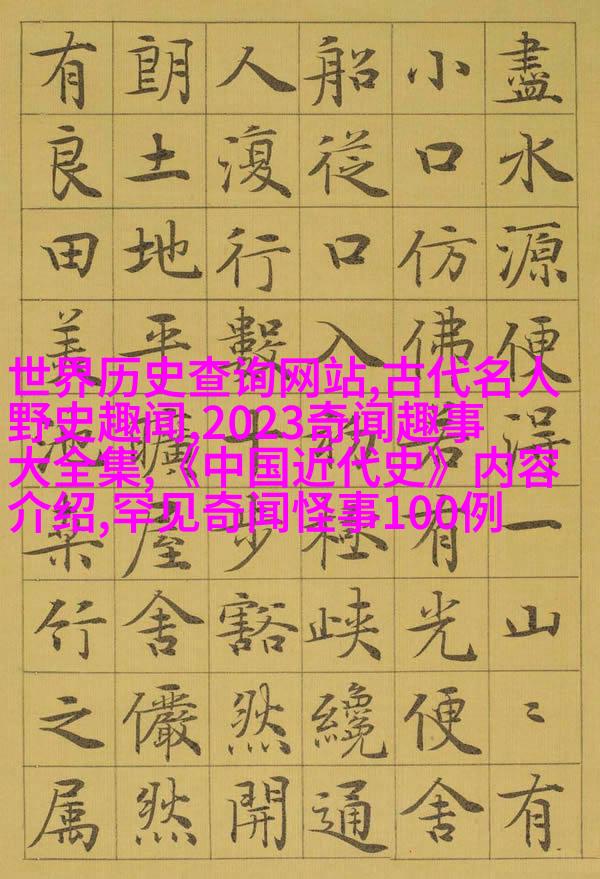 盡水源便得一山〻有
小口仿佛若有光便舍
船從口入初極峽纔通
人復行數十步豁然開
朗土地平曠屋舍儼然
有良田美池桑竹之属
世界历史查询网站,古代名人
野史趣闻,2023奇闻趣事
大全集,《中国近代史》内容
介绍,罕见奇闻怪事100例